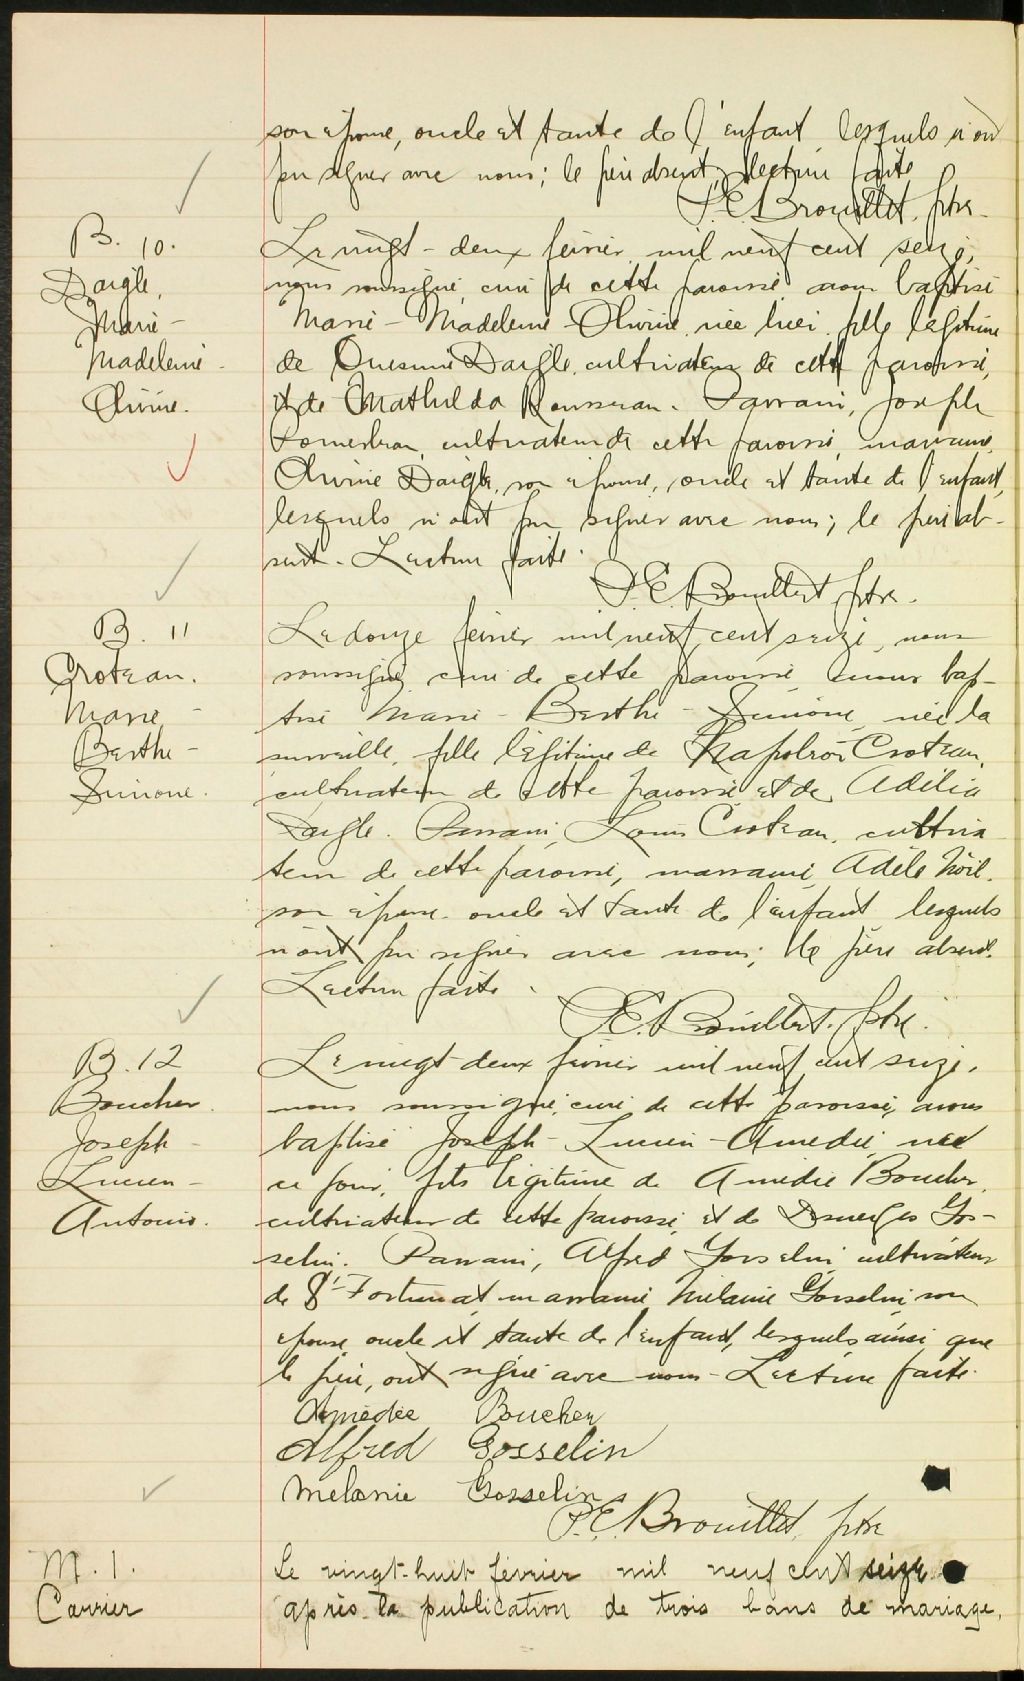 son épouse, oncle et tante de l'enfant lesquels n'ont
pu signer avec nous; le père absent, lecture faite
P.E. Brouillet, ptre.
B. 10.
Daigle,
Marie -
Madeleine -
Olivine.
Le vingt-deux février mil neuf cent seize,
nous soussigné, curé de cette paroisse avons baptisé
Marie - Madeleine - Olivine née hier fille légitime
de Onésime Daigle, cultivateur de cette paroisse,
et de Mathilda Rousseau. Parrain, Joseph
cultivateur de cette paroisse, marraine,
Olivine Daigle, son épouse, oncle et tante de l'enfant,
lesquels n'ont pu signer avec nous; le père ab-
sent. Lecture faite.
P.E. Brouillet ptre.
B. 11
Croteau.
Marie -
Berthe -
Simone.
Le douze février mil neuf cent seize, nous
soussigné curé de cette paroisse avons bap-
tisé Marie - Berthe - Simone, née la
surveille, fille légitime de Napoléon Croteau,
cultivateur de cette paroisse et de Adélia
Daigle. Parrain, Louis Croteau, cultiva
teur de cette paroisse, marraine, Adèle Noël.
son épouse oncle et tante de l'enfant lesquels
n'ont pu signer avec nous; le père absent.
Lecture faite.
P.E. Brouillet. ptre.
B. 12
Boucher
Joseph -
Lucien -
Antonio.
Le vingt-deux février mil neuf cent seize,
nous soussigné, curé de cette paroisse, avons
baptisé Joseph - Lucien - Amédée, né
ce jour, fils légitime de Amédée Boucher,
cultivateur de cette paroisse, et de Gos-
selin. Parrain, Alfred Gosselin, cultivateur
de St-Fortunat, marraine Mélanie Gosselin, son
épouse, oncle et tante de l'enfant, lesquels ainsi que
le père, ont signé avec nous - Lecture faite.
Amédée Boucher
Alfred Gosselin
Melanie Gosselin
P.E. Brouillet, ptre
M. 1.
Carrier
Le vingt-huit février mil neuf cent seize
après la publication de trois bans de mariage,